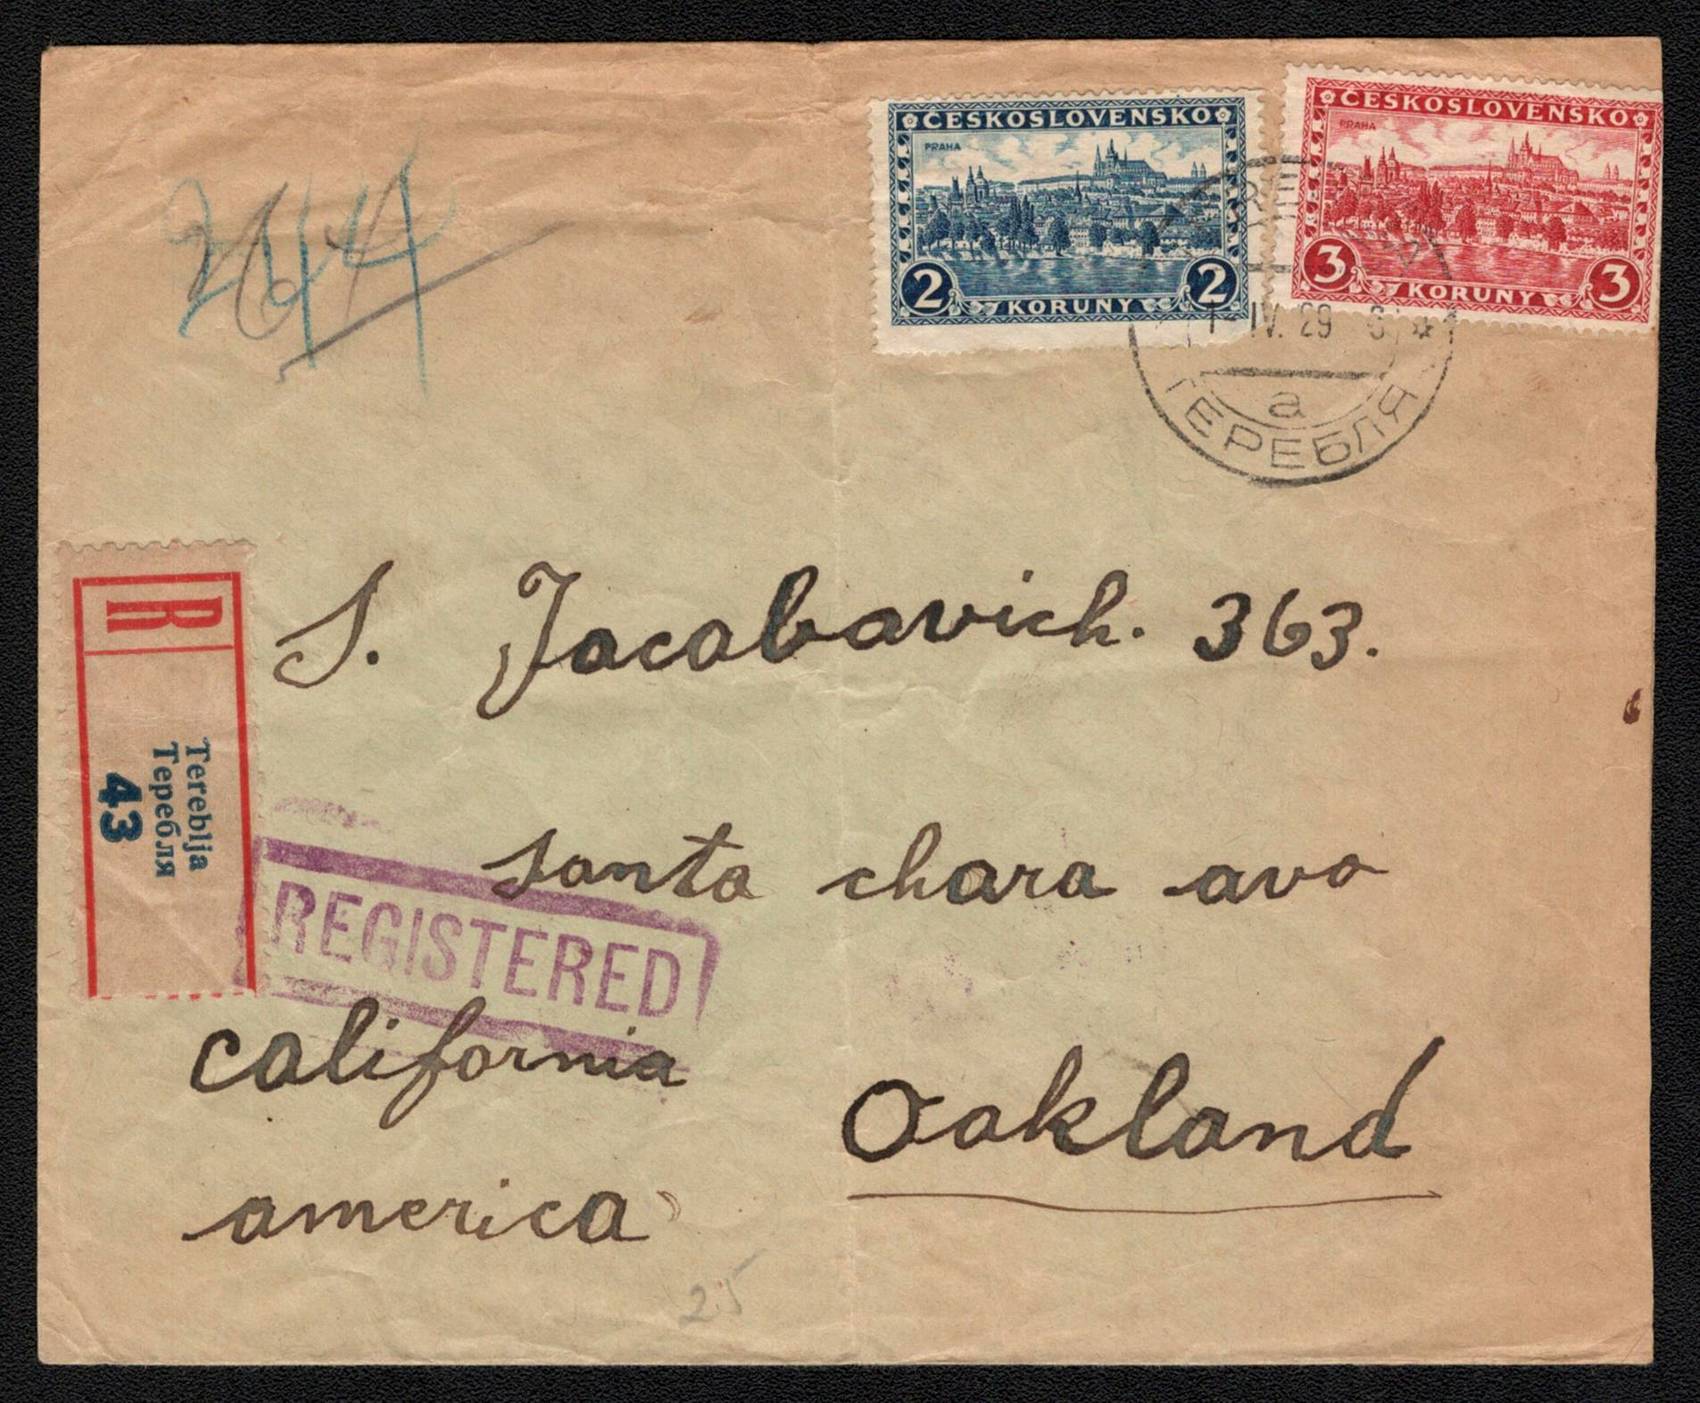 ČESKOSLOVENSKO
PRAHA
2 KORUNY 2
ČESKOSLOVENSKO
PRAHA
3 KORUNY 3
IV. 29
a
ТЕРЕБЛЯ
R
Tereblja
Теребля
43
S. Jacabavich. 363.
santa chara ava
REGISTERED
california
Oakland
america
25